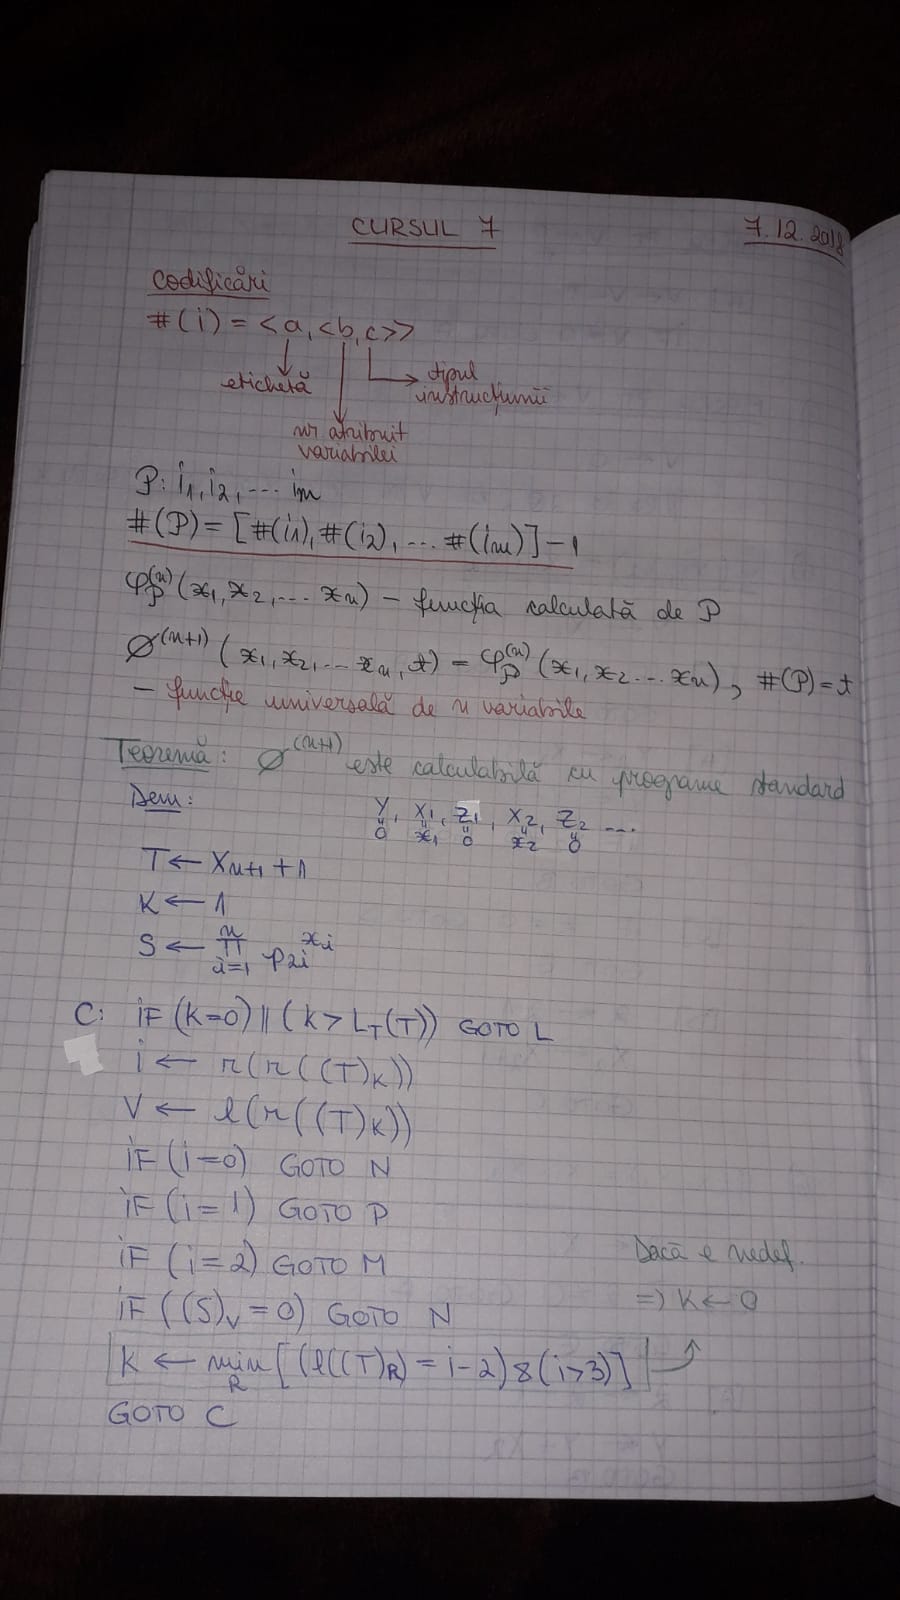 CURSUL 7 7.12.2018
Codificări
#(i) = <a, <b, c>>
etichetă tipul instrucțiunii
nr atribuit variabilei
P: i₁, i₂, ... im
#(P) = [#(i₁), #(i₂), ... #(im)] - 1
φ_P^(n) (x₁, x₂, ... xn) - funcția calculată de P
Ø^(n+1) (x₁, x₂, ... xn, t) = φ_P^(n) (x₁, x₂ ... xn), #(P) = t
- funcție universală de n variabile
Teoremă: Ø^(n+1) este calculabilă cu programe standard
Dem: Y, X₁, Z₁, X₂, Z₂ ...
0 x₁ 0 x₂ 0
T ← Xn+1 + 1
K ← 1
S ← ∏_{i=1}^{n} p_{2i}^{xi}
C: IF (K=0) || (K > L_T(T)) GOTO L
i ← r(r((T)_K))
V ← l(r((T)_K))
IF (i=0) GOTO N
IF (i=1) GOTO P
IF (i=2) GOTO M
Dacă e nedef.
IF ((S)_V = 0) GOTO N
=> K ← 0
K ← min_R [(l((T)_R) = i-2) & (i>3)]
GOTO C